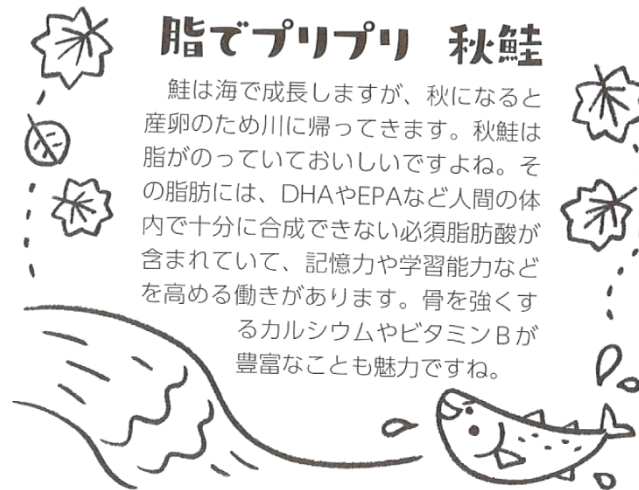 脂でプリプリ 秋鮭
鮭は海で成長しますが、秋になると
産卵のため川に帰ってきます。秋鮭は
脂がのっていておいしいですよね。そ
の脂肪には、DHAやEPAなど人間の体
内で十分に合成できない必須脂肪酸が
含まれていて、記憶力や学習能力など
を高める働きがあります。骨を強くす
るカルシウムやビタミンBが
豊富なことも魅力ですね。